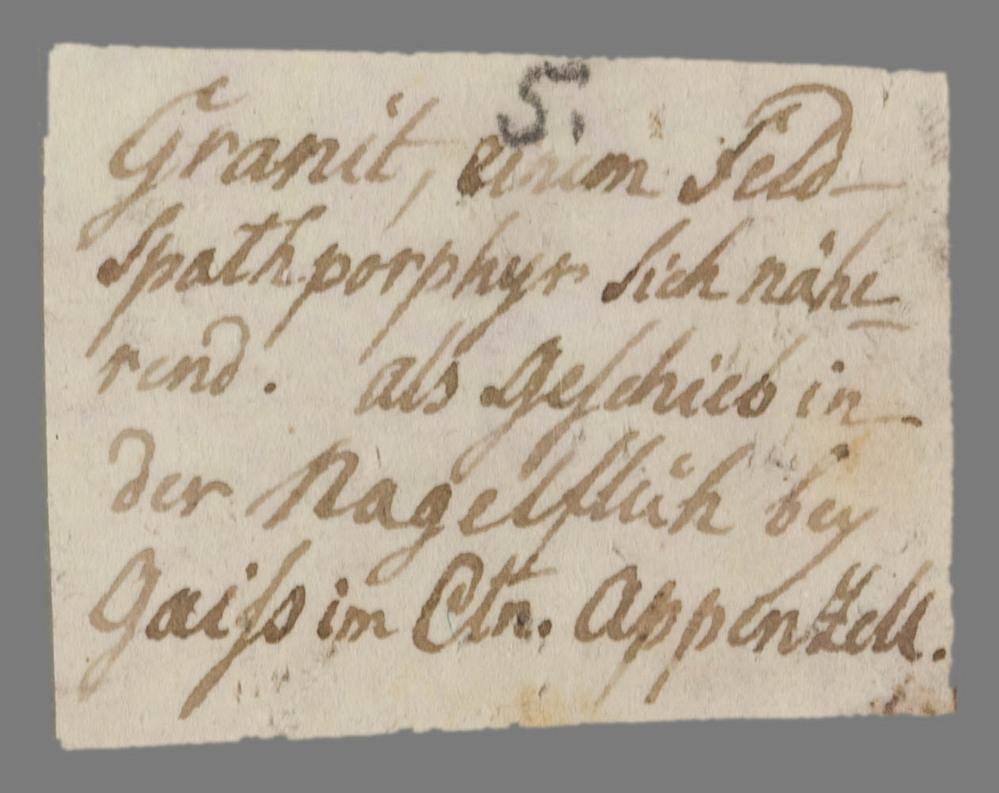 5.
Granit, einem Feld-
Spathporphyr sich nähe-
rend. als Geschieb in
der Nagelflüh bey
Gaiss im Ctn. Appenzell.